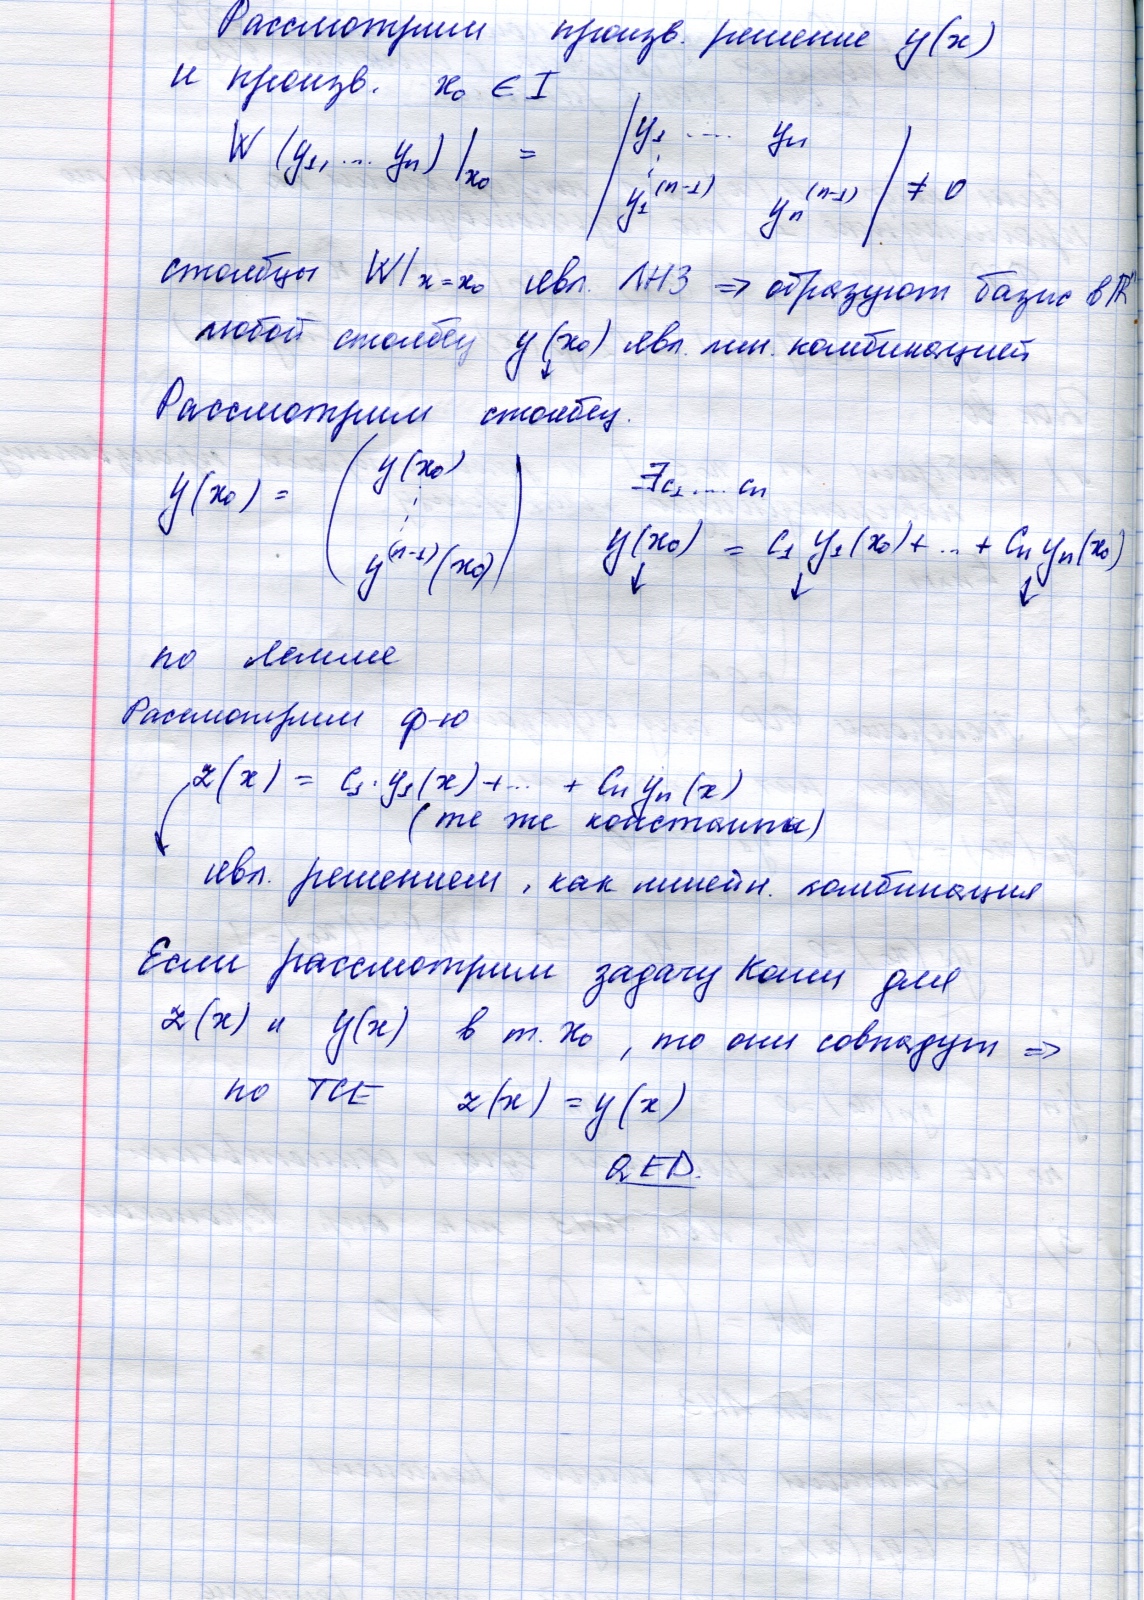 Рассмотрим произв. решение y(x)
и произв. x₀ ∈ I
W (y₁, ... yₙ) |ₓ₀ = | y₁ .... yₙ
⋮
y₁⁽ⁿ⁻¹⁾ yₙ⁽ⁿ⁻¹⁾ | ≠ 0
столбцы W|ₓ₌ₓ₀ явл. ЛНЗ ⇒ образуют базис в ℝⁿ
любой столбец y(x₀) явл. лин. комбинацией
↓
Рассмотрим столбец.
y(x₀) = ( y(x₀) ⋮ y⁽ⁿ⁻¹⁾(x₀) )
∃c₁ .... cₙ
y(x₀) = c₁ y₁(x₀) + ... + cₙ yₙ(x₀)
↓ ↓ ↓
по лемме
Рассмотрим ф-ю
z(x) = c₁ · y₁(x) + ... + cₙ yₙ(x)
(те же константы)
явл. решением, как линейн. комбинация
Если рассмотрим задачу Коши для
z(x) и y(x) в т. x₀, то они совпадут ⇒
по ТСЕ z(x) = y(x)
QED.